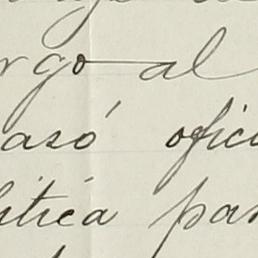 rgo al
asó ofici
lítica par